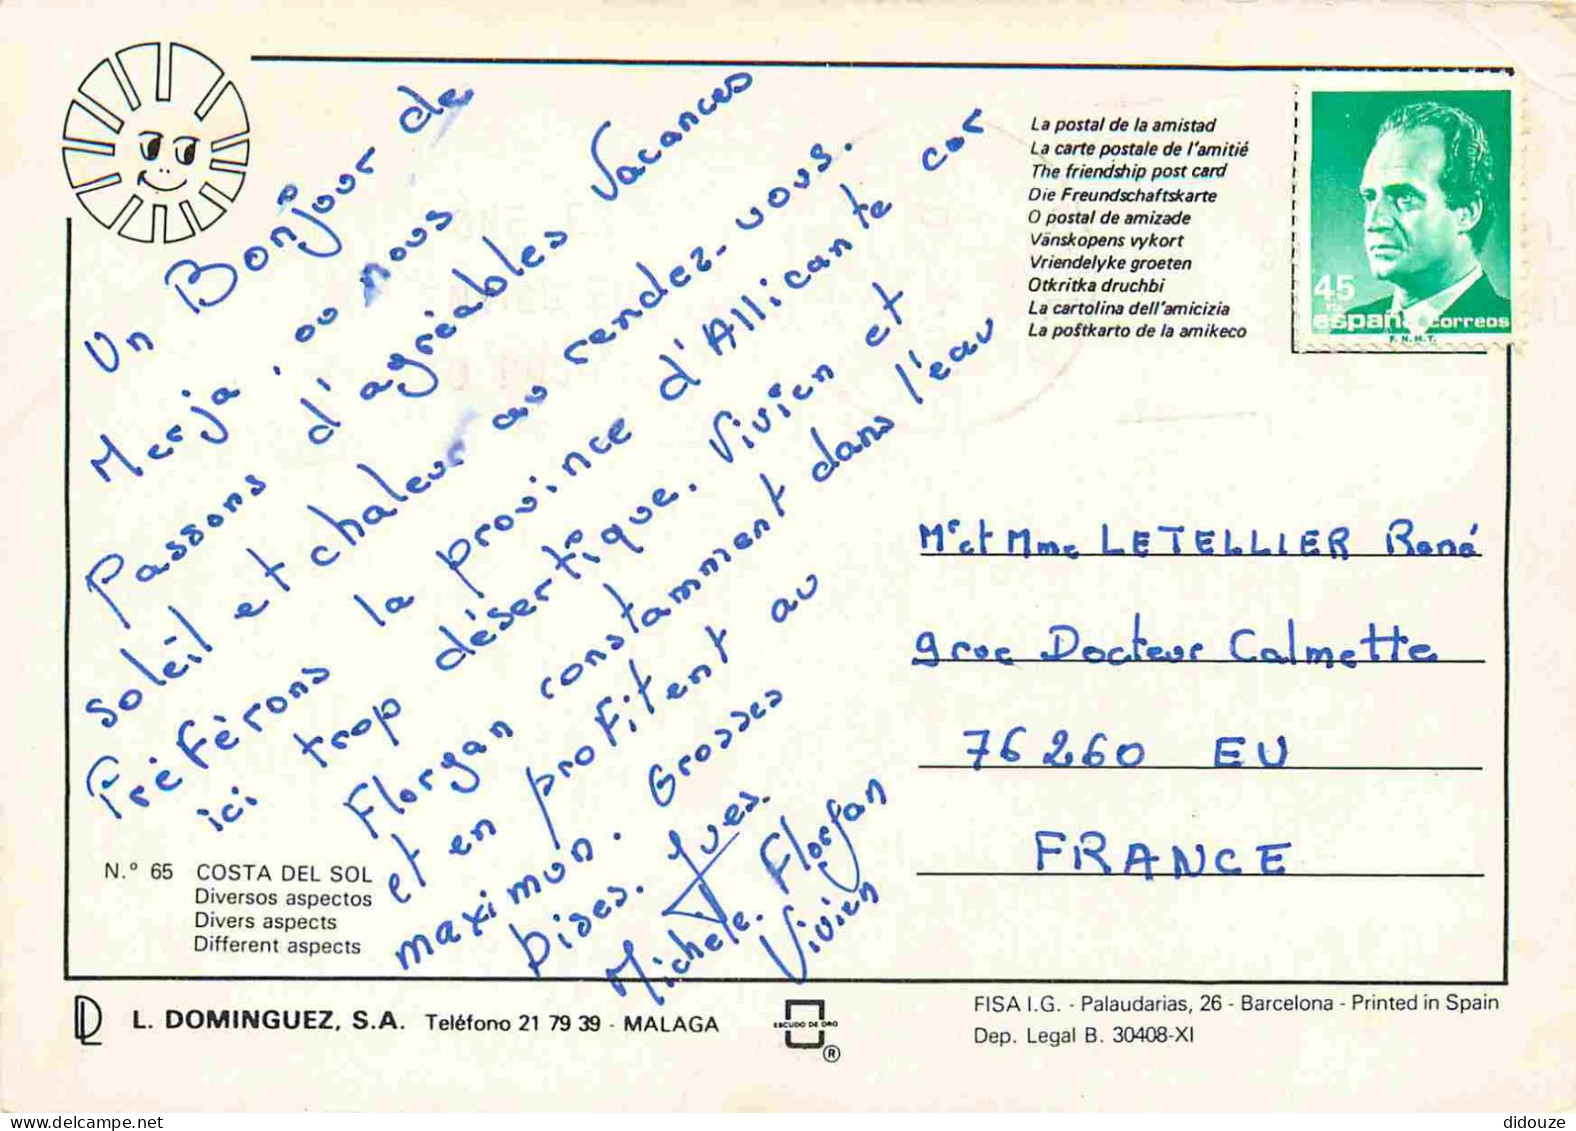 Un Bonjour de
Merja, oo nous
Passons d'agréables Vacances
soléil et chaleur au rendez-vous.
Préférons la province d'Allicante car
ici trop désertique. Vivien et
Florgan constamment dans l'eau
et en profitent au
maximun. Grosses
bises. Yves.
Michèle. Florgan
Vivien
La postal de la amistad
La carte postale de l'amitié
The friendship post card
Die Freundschaftskarte
O postal de amizade
Vänskopens vykort
Vriendelyke groeten
Otkritka druchbi
La cartolina dell'amicizia
La poŝtkarto de la amikeco
45
PTA
españa correos
F.N.M.T.
Mr et Mme LETELLIER René
9 rue Docteur Calmette
76260 EU
FRANCE
N.º 65 COSTA DEL SOL
Diversos aspectos
Divers aspects
Different aspects
DL L. DOMINGUEZ, S.A. Teléfono 21 79 39 - MALAGA
ESCUDO DE ORO
®
FISA I.G. - Palaudarias, 26 - Barcelona - Printed in Spain
Dep. Legal B. 30408-XI
didouze